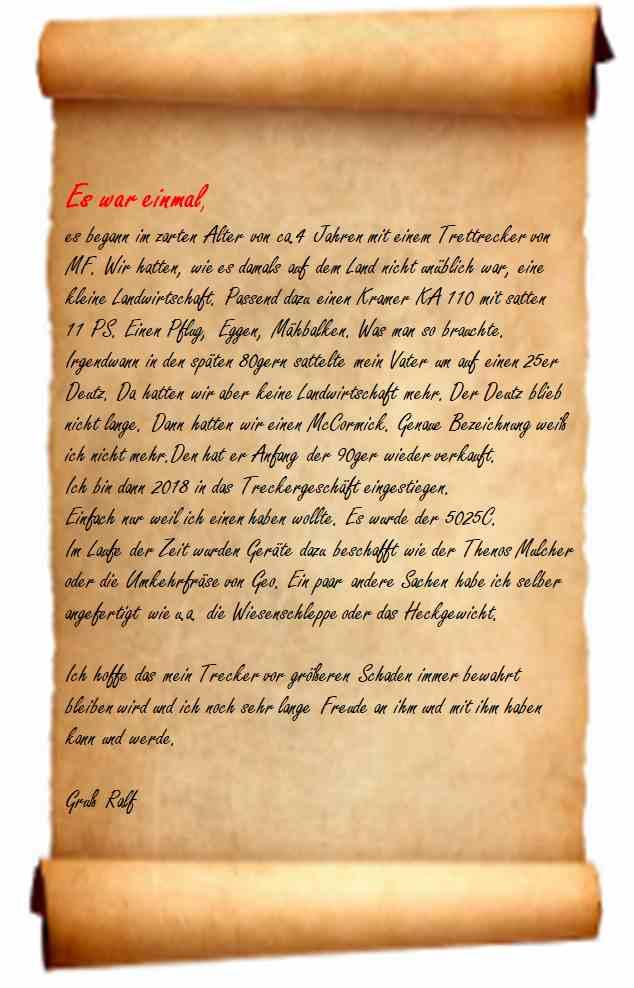 Es war einmal,
es begann im zarten Alter von ca.4 Jahren mit einem Trettrecker von
MF. Wir hatten, wie es damals auf dem Land nicht unüblich war, eine
kleine Landwirtschaft. Passend dazu einen Kramer KA 110 mit satten
11 PS. Einen Pflug, Eggen, Mähbalken. Was man so brauchte.
Irgendwann in den späten 80gern sattelte mein Vater um auf einen 25er
Deutz. Da hatten wir aber keine Landwirtschaft mehr. Der Deutz blieb
nicht lange. Dann hatten wir einen McCormick. Genaue Bezeichnung weiß
ich nicht mehr.Den hat er Anfang der 90ger wieder verkauft.
Ich bin dann 2018 in das Treckergeschäft eingestiegen.
Einfach nur weil ich einen haben wollte. Es wurde der 5025C.
Im Laufe der Zeit wurden Geräte dazu beschafft wie der Thenos Mulcher
oder die Umkehrfräse von Geo. Ein paar andere Sachen habe ich selber
angefertigt wie u.a. die Wiesenschleppe oder das Heckgewicht.
Ich hoffe das mein Trecker vor größeren Schaden immer bewahrt
bleiben wird und ich noch sehr lange Freude an ihm und mit ihm haben
kann und werde.
Gruß Ralf